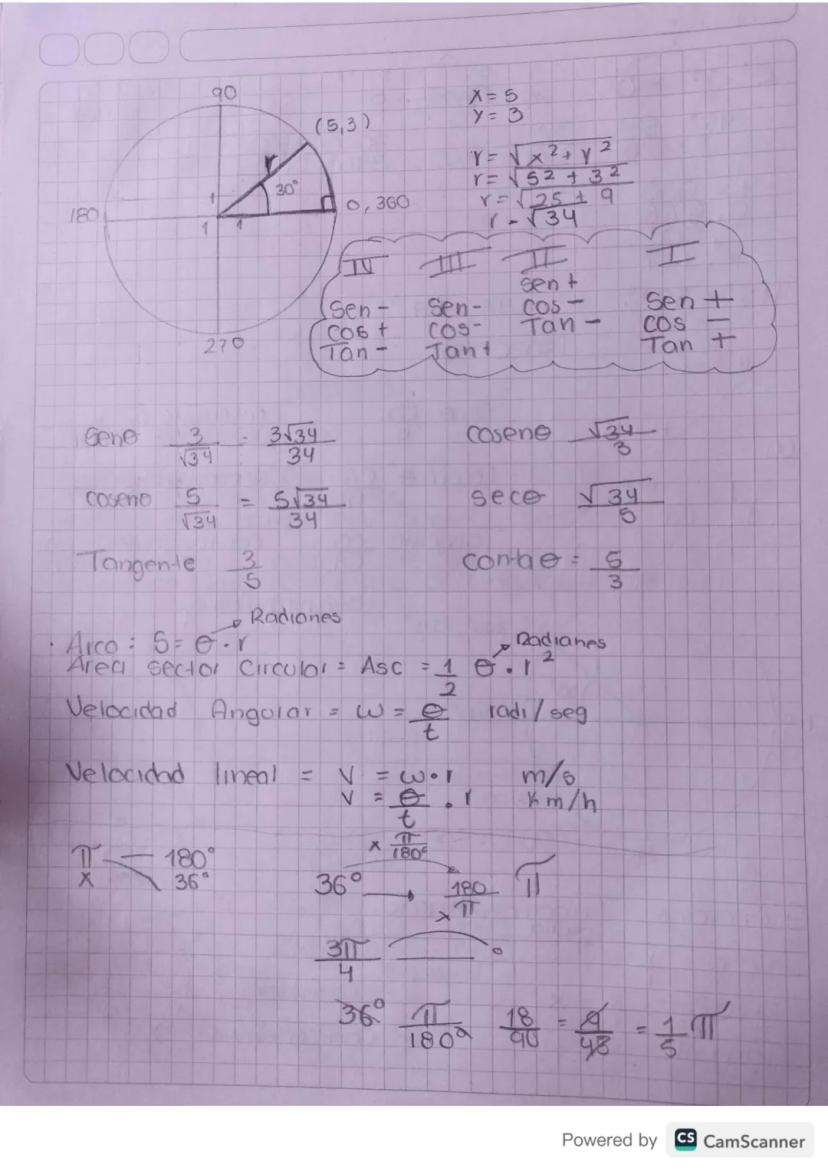 90
(5,3)
r
30°
180
0, 360
1
1
1
270
x = 5
y = 3
r = √x² + y²
r = √5² + 3²
r = √25 + 9
r - √34
IV III II I
Sen - Sen - Sen + Sen +
cos + cos - cos - cos -
Tan - Tan + Tan - Tan +
Seno 3/√34 - 3√34/34 coseno √34/3
coseno 5/√34 = 5√34/34 sece √34/5
Tangente 3/5 = 5/3
Radianes
Arco: S = θ · r
Radianes
Area sector circular = Asc = 1/2 θ · r²
Velocidad Angular = ω = θ/t radi/seg
Velocidad lineal = V = ω · r m/s
V = θ/t · r Km/h
π — 180°
x 36°
x π/180°
36° → 180/π π
x
3π/4
36° π/180° 18/90 = 9/45 = 1/5 π
Powered by CS CamScanner